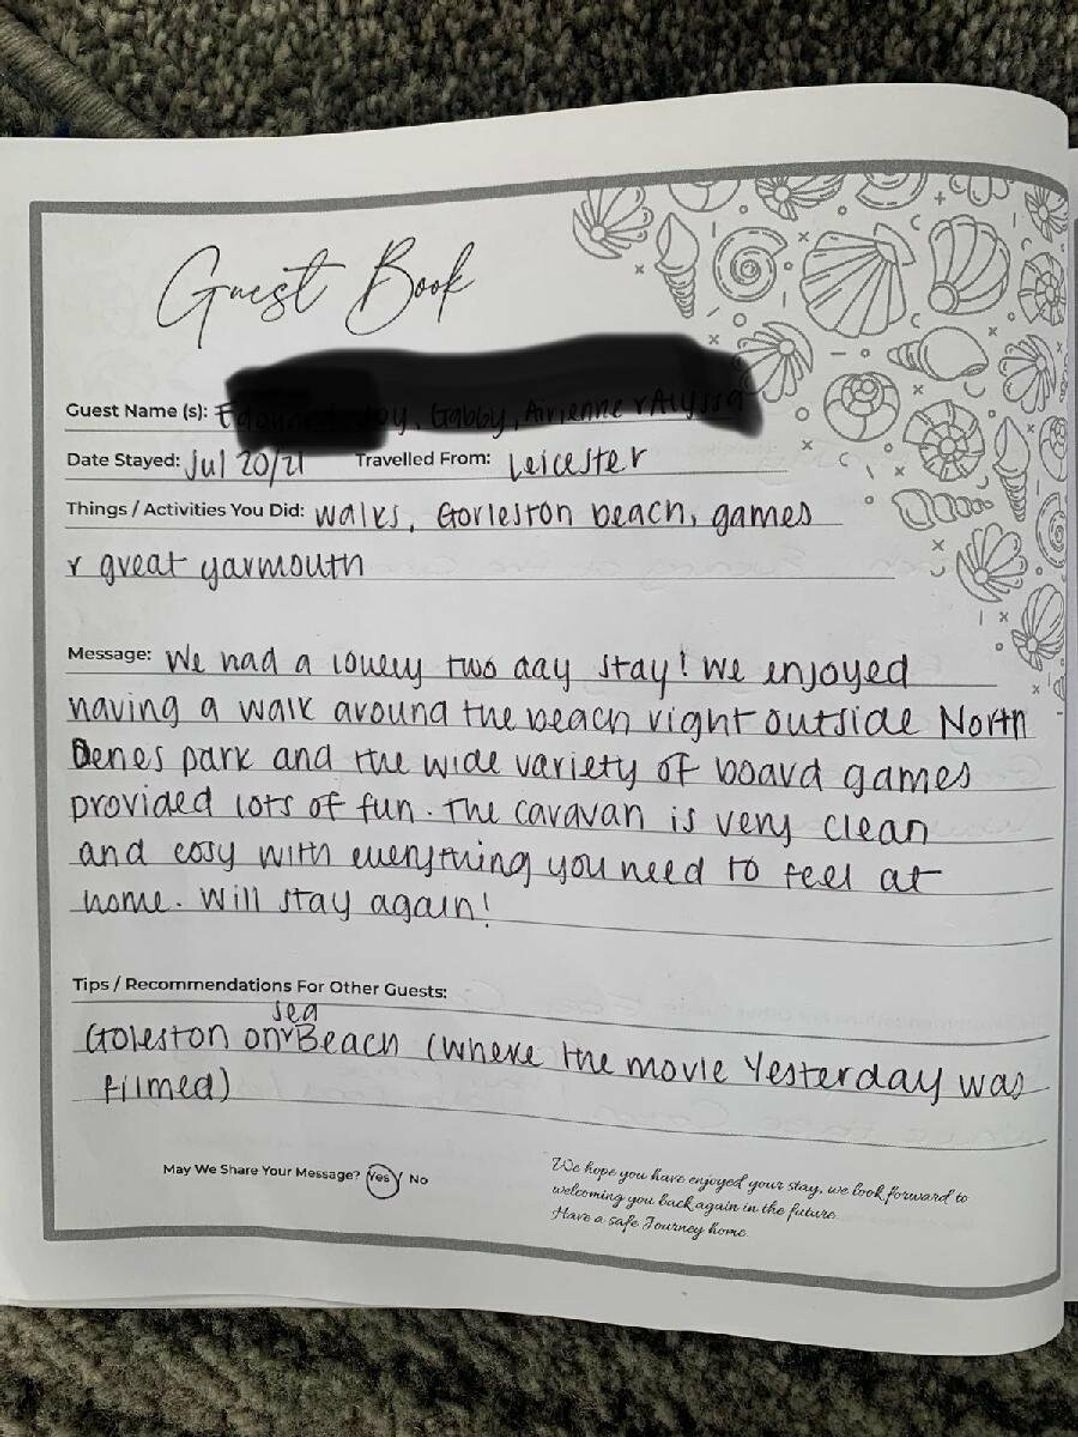 Guest Book
Guest Name (s):
Date Stayed: Jul 20/21 Travelled From: Leicester
Things / Activities You Did: walks, Gorleston beach, games
r great yarmouth
Message: We had a lovely two day stay! We enjoyed
having a walk around the beach right outside North
Denes park and the wide variety of board games
provided lots of fun. The caravan is very clean
and cosy with everything you need to feel at
home. Will stay again!
Tips / Recommendations For Other Guests:
sea
Goleston on Beach (where the movie Yesterday was
filmed)
May We Share Your Message? Yes / No
We hope you have enjoyed your stay, we look forward to
welcoming you back again in the future.
Have a safe Journey home.